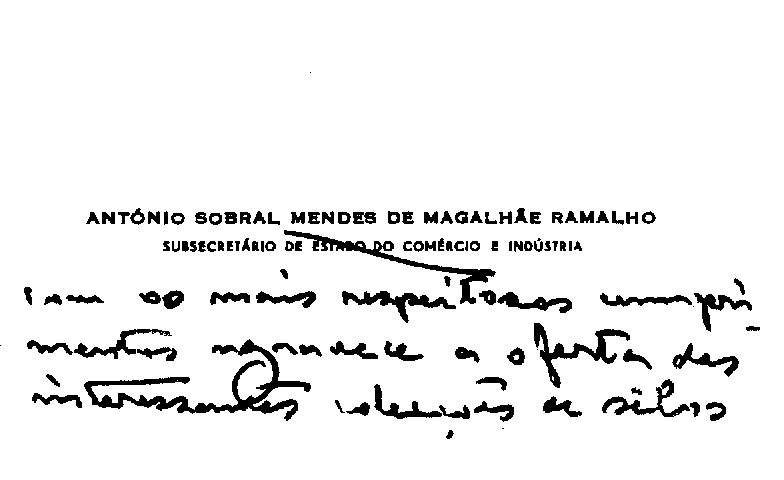 ANTÓNIO SOBRAL MENDES DE MAGALHÃE RAMALHO
SUBSECRETÁRIO DE ESTADO DO COMÉRCIO E INDÚSTRIA
com os mais respeitosos cumpri-
mentos agradece a oferta das
interessantes colecções de sêlos